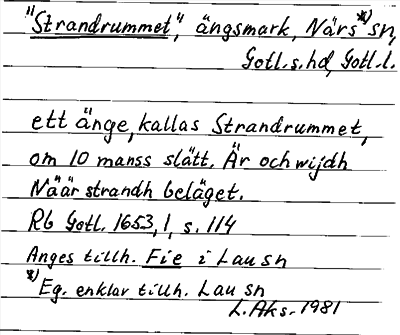 "Strandrummet", ängsmark, Närs *) sn,
Gotl. s. hd, Gotl. l.
ett änge, kallas Strandrummet,
om 10 manss slått. Är och wijdh
Näär strandh beläget.
Rb Gotl. 1653, 1, s. 114
Anges tillh. Fie i Lau sn
*) Eg. enklav tillh. Lau sn
L. Aks. 1981